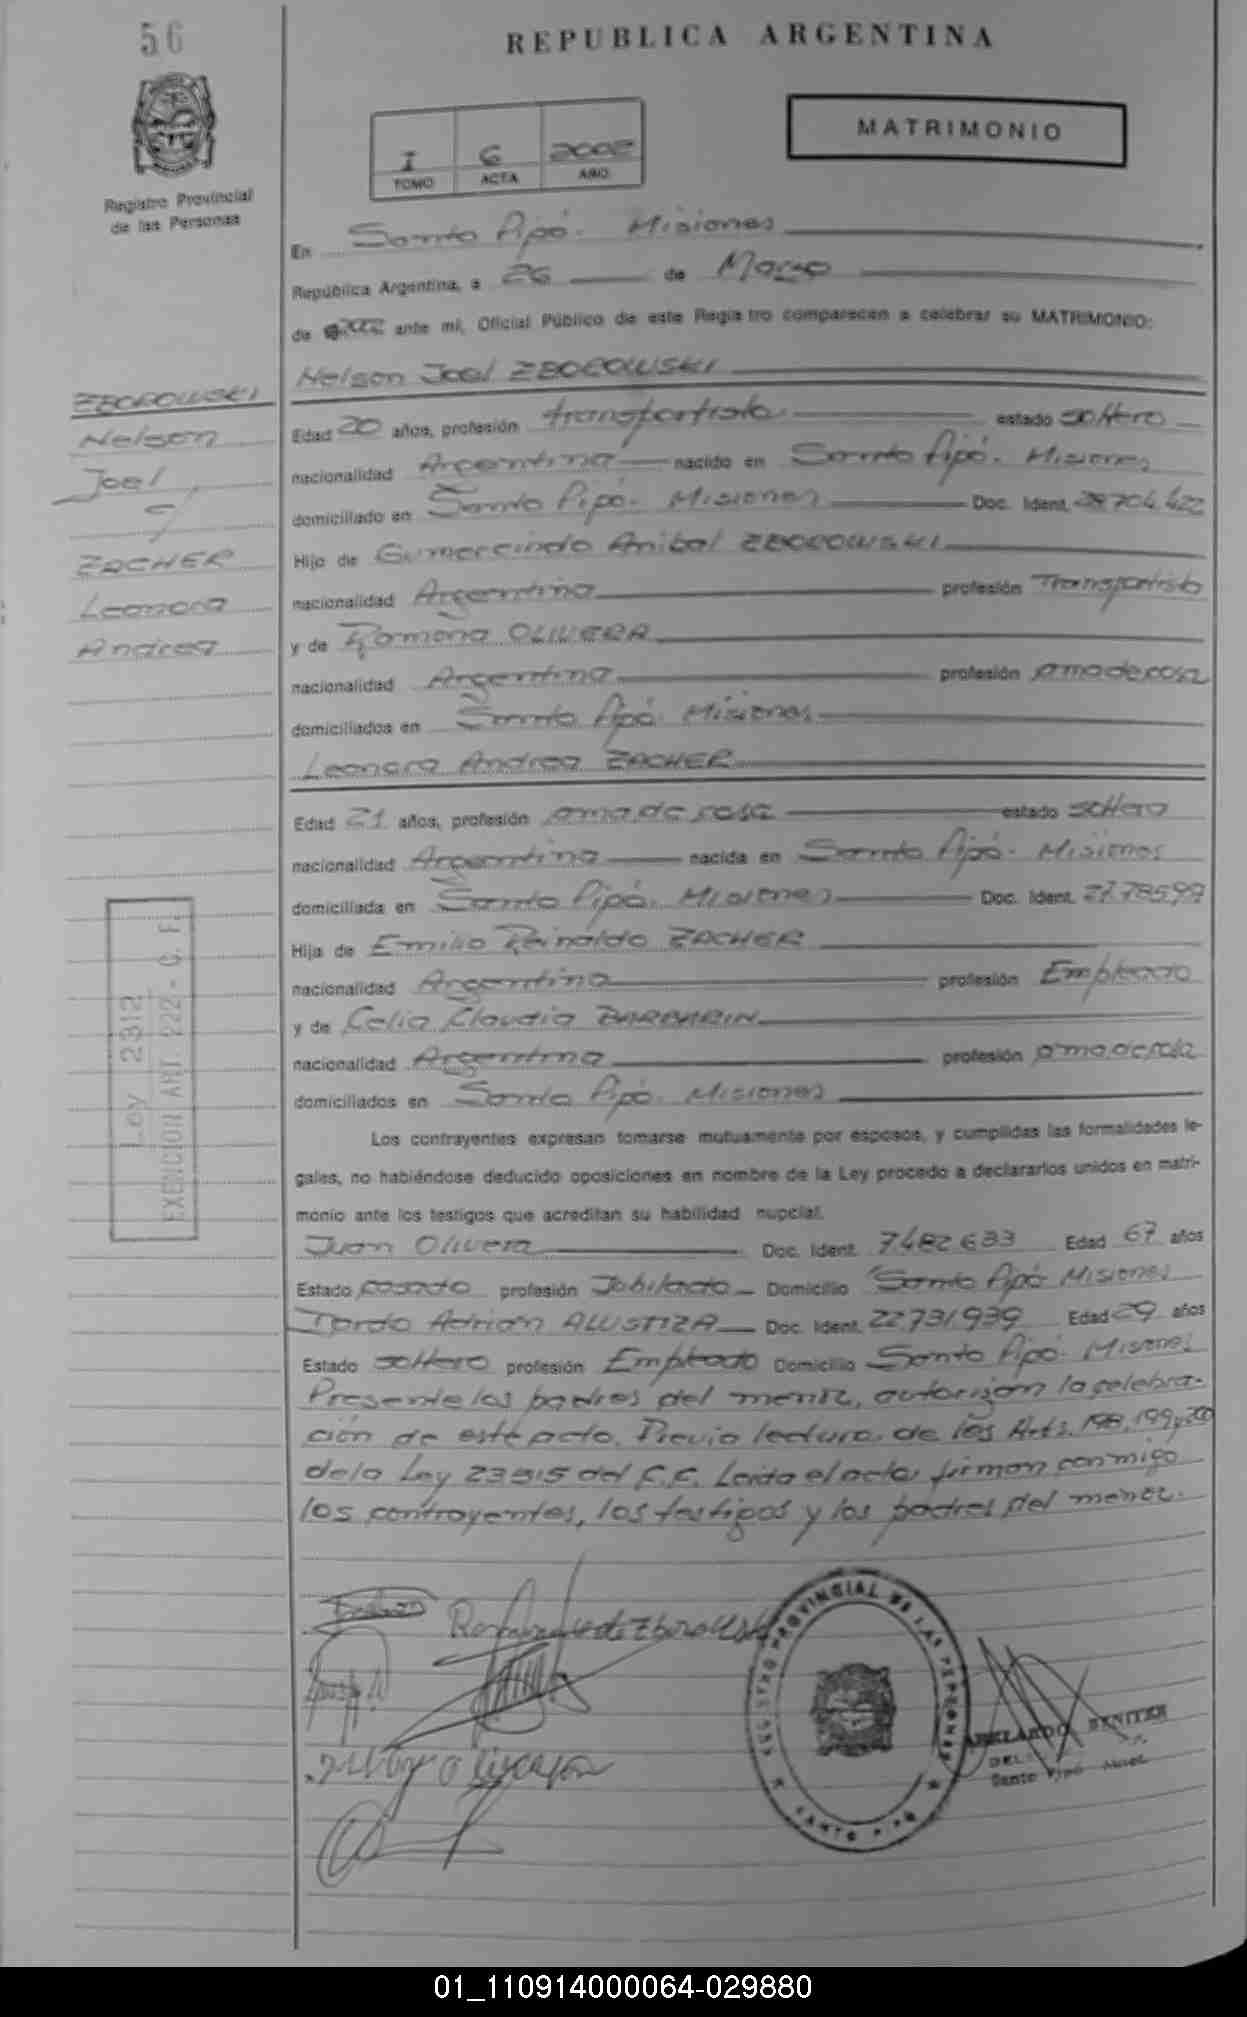 56
REPUBLICA ARGENTINA
MATRIMONIO
I 6 2002
TOMO ACTA AÑO
Registro Provincial
de las Personas
En Santo Pipó. Misiones
República Argentina, a 26 de Marzo
de 2002 ante mí, Oficial Público de este Registro comparecen a celebrar su MATRIMONIO:
Nelson Joel ZBOROWSKI
ZBOROWSKI
Nelson
Joel
y
ZACHER
Leonora
Andrea
Edad 20 años, profesión transportista estado soltero
nacionalidad Argentina nacido en Santo Pipó. Misiones
domiciliado en Santo Pipó. Misiones Doc. Ident. 28704.422
Hijo de Gumercindo Anibal ZBOROWSKI
nacionalidad Argentina profesión Transportista
y de Ramona OLIVERA
nacionalidad Argentina profesión ama de casa
domiciliados en Santo Pipó. Misiones
Leonora Andrea ZACHER
Edad 21 años, profesión ama de casa estado soltera
nacionalidad Argentina nacida en Santo Pipó. Misiones
domiciliada en Santo Pipó. Misiones Doc. Ident.
Hija de Emilio Reinaldo ZACHER
nacionalidad Argentina profesión Empleado
y de Celia Claudia BARBARIN
nacionalidad Argentina profesión ama de casa
domiciliados en Santo Pipó. Misiones
Ley 2312
EXENCION ART. 222 - C. F.
Los contrayentes expresan tomarse mutuamente por esposos, y cumplidas las formalidades le-
gales, no habiéndose deducido oposiciones en nombre de la Ley procedo a declararlos unidos en matri-
monio ante los testigos que acreditan su habilidad nupcial.
Juan Olivera Doc. Ident. 7482633 Edad 67 años
Estado casado profesión Jubilado Domicilio Santo Pipó Misiones
Adrián ALUSTIZA Doc. Ident. 22.731.939 Edad 29 años
Estado soltero profesión Empleado Domicilio Santo Pipó. Misiones
Presente los padres del menor, autorizan la celebra-
ción de este acto. Previa lectura de los Arts. 198, 199 y 200
de la Ley 23515 del C.C. Leída el acta, firman conmigo
los contrayentes, los testigos y los padres del menor.
REGISTRO PROVINCIAL DE LAS PERSONAS
SANTO PIPO
ABELARDO BENITEZ
Santo Pipó
01_110914000064-029880